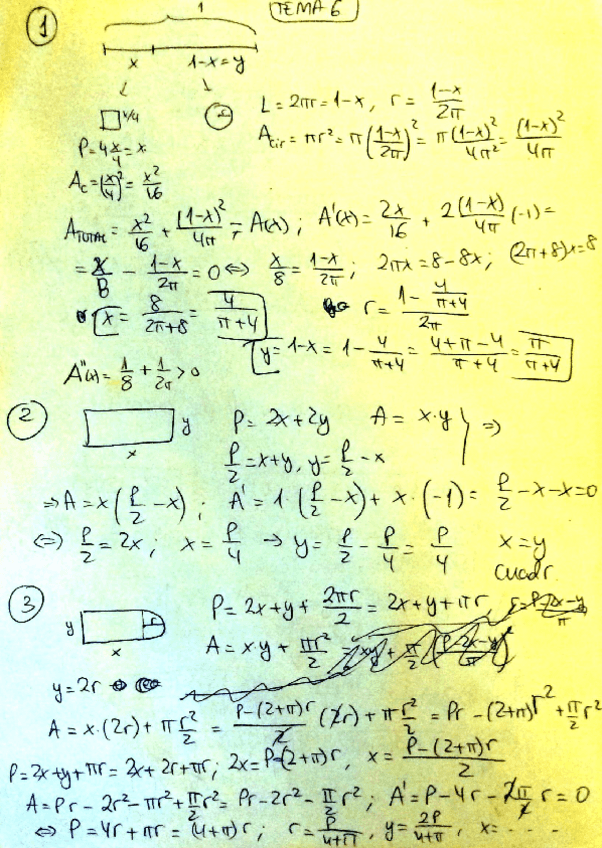 TEMA 6
1
1
x 1-x=y
x/4
P=4x/4=x
L=2πr=1-x, r=(1-x)/2π
A_cir=πr²=π((1-x)/2π)²=π(1-x)²/4π²=(1-x)²/4π
A_c=(x/4)²=x²/16
A_TOTAL=x²/16+(1-x)²/4π=A(x); A'(x)=2x/16+2(1-x)/4π(-1)=
=x/8-(1-x)/2π=0⇔x/8=(1-x)/2π; 2πx=8-8x; (2π+8)x=8
x=8/(2π+8)=4/(π+4) r=(1-4/(π+4))/2π
y=1-x=1-4/(π+4)=(4+π-4)/(π+4)=π/(π+4)
A''(x)=1/8+1/2π>0
2
y
x
P=2x+2y A=x·y ⇒
P/2=x+y, y=P/2-x
⇒A=x(P/2-x); A'=1(P/2-x)+x·(-1)=P/2-x-x=0
⇔P/2=2x; x=P/4→y=P/2-P/4=P/4 x=y
cuadr.
3
y
r
x
P=2x+y+2πr/2=2x+y+πr, r=(P-2x-y)/π
A=x·y+πr²/2=xy+π/2((P-2x-y)/π)²
y=2r
A=x·(2r)+πr²/2=(P-(2+π)r)/2(2r)+πr²/2=Pr-(2+π)r²+π/2r²
P=2x+y+πr=2x+2r+πr; 2x=P-(2+π)r, x=(P-(2+π)r)/2
A=Pr-2r²-πr²+π/2r²=Pr-2r²-π/2r²; A'=P-4r-2π/2r=0
⇔P=4r+πr=(4+π)r; r=P/(4+π), y=2P/(4+π), x=....